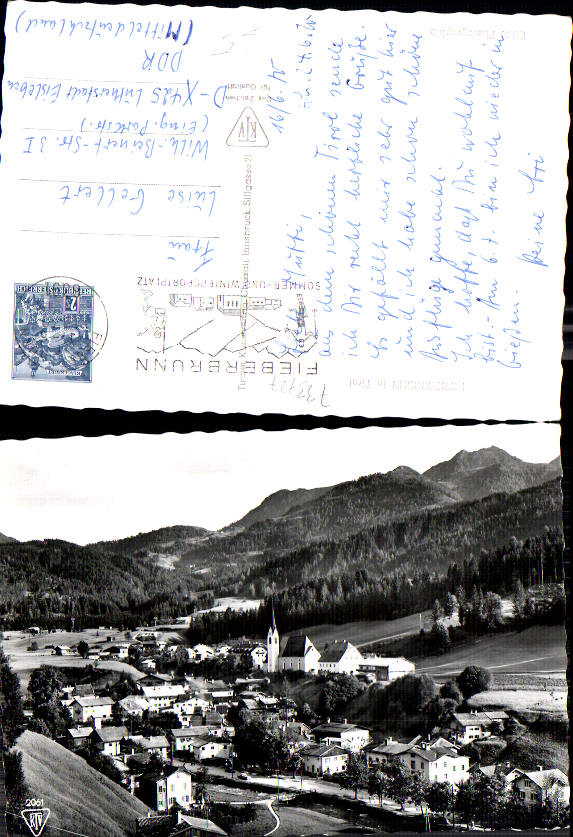 FIEBERBRUNN in Tirol
Liebe Mutti!
aus dem schönen Tirol sende
ich Dir recht herzliche Grüße.
Es gefällt mir sehr gut hier
und ich habe schon schöne
Ausflüge gemacht.
Ich hoffe, daß Du wohlauf
bist. - Am 6.7. bin ich wieder in
Gießen.
Deine Evi
16/6.75
733727
Echte Photographie
KTV
Das Zeichen
für Qualität
FIEBERBRUNN
SOMMER- UND WINTERSPORTPLATZ
REPUBLIK ÖSTERREICH
2
Frau
Luise Gellert
Wilh.-Beinert-Str. 3 I
(Eing. Parkstr.)
D-X425 Lutherstadt Eisleben
DDR
(Mitteldeutschland)
2061
KTV